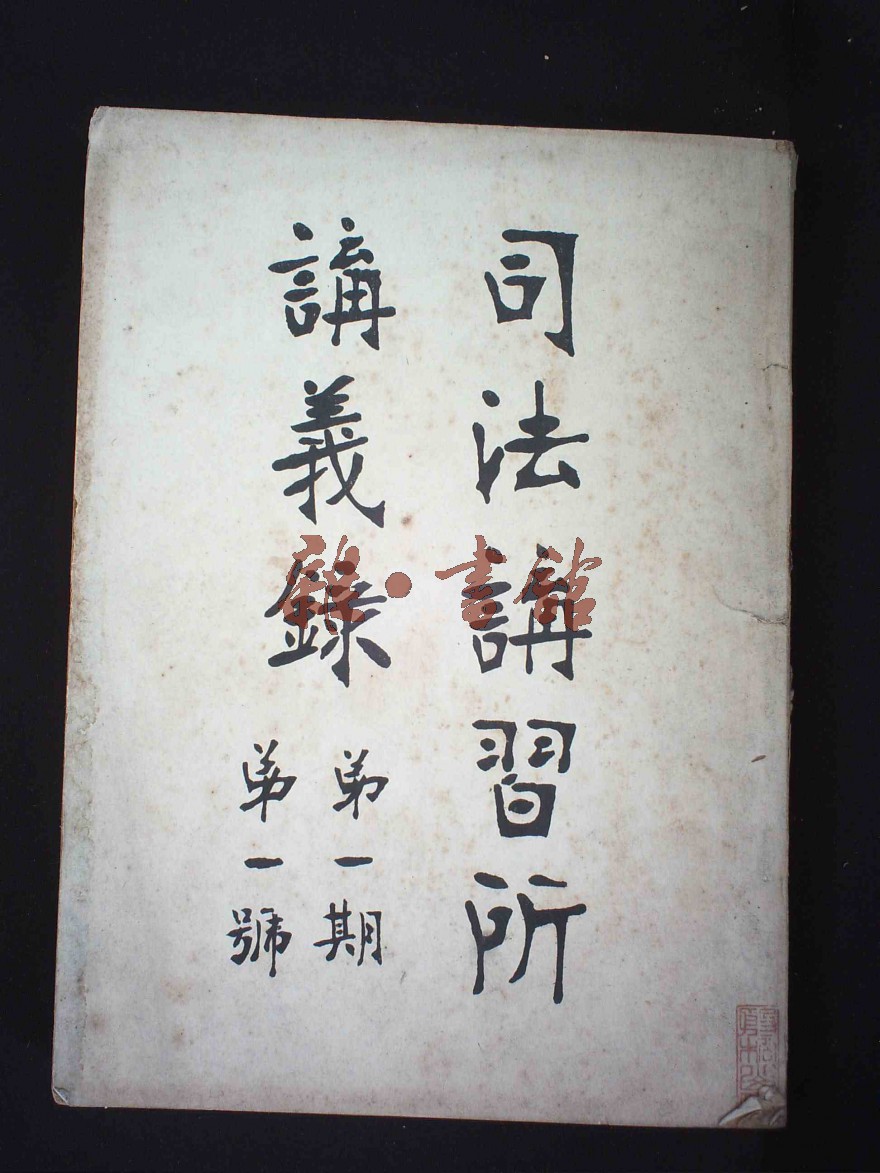 司法講習所
講義錄
第一期
第一號